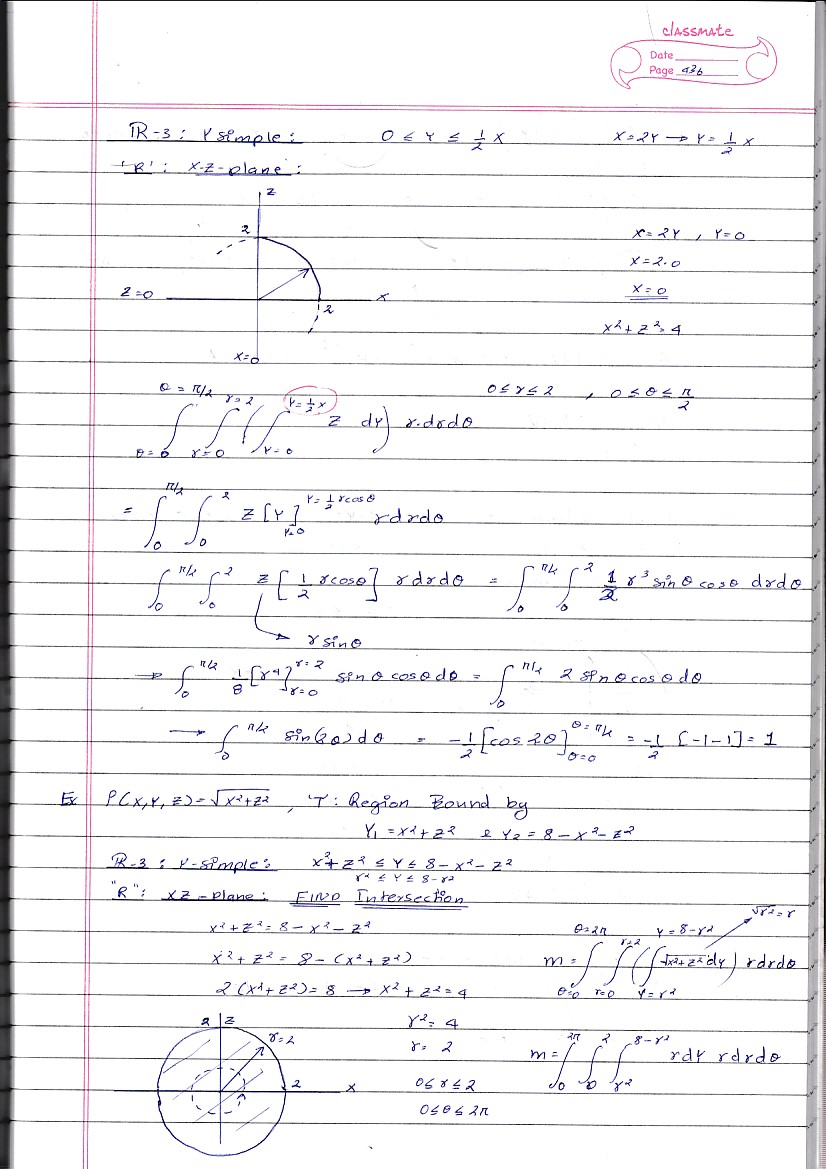 classmate
Date
Page 236
R-3 : Y simple : 0 ≤ Y ≤ 1/2 X X = 2Y → Y = 1/2 X
'R' : X-Z-plane :
Z
2
X = 2Y , Y = 0
X = 2·0
Z = 0 X X = 0
2
X² + Z² = 4
X = 0
0 ≤ r ≤ 2 , 0 ≤ θ ≤ π/2
∫_{θ=0}^{θ=π/2} ∫_{r=0}^{r=2} ( ∫_{Y=0}^{Y=1/2 X} Z dY ) r·drdθ
= ∫_0^{π/2} ∫_0^2 Z [Y]_{Y=0}^{Y=1/2 rcosθ} rdrdθ
∫_0^{π/2} ∫_0^2 Z [1/2 rcosθ] rdrdθ = ∫_0^{π/2} ∫_0^2 1/2 r³ sinθ cosθ drdθ
→ r sinθ
→ ∫_0^{π/2} 1/8 [r⁴]_{r=0}^{r=2} sinθ cosθ dθ = ∫_0^{π/2} 2 sinθ cosθ dθ
→ ∫_0^{π/2} sin(2θ) dθ = -1/2 [cos 2θ]_{θ=0}^{θ=π/2} = -1/2 [-1-1] = 1
Ex P(X,Y,Z) = √X²+Z² , 'T' : Region Bound by
Y₁ = X² + Z² & Y₂ = 8 - X² - Z²
R-3 : Y-simple : X² + Z² ≤ Y ≤ 8 - X² - Z²
r² ≤ Y ≤ 8 - r²
"R" : XZ-plane : FIND Intersection
√r² = r
X² + Z² = 8 - X² - Z²
X² + Z² = 8 - (X² + Z²) m = ∫_{θ=0}^{θ=2π} ∫_{r=0}^{r=2} ( ∫_{Y=r²}^{Y=8-r²} √X²+Z² dY ) rdrdθ
2(X² + Z²) = 8 → X² + Z² = 4
2 Z r² = 4
r = 2 r = 2 m = ∫_0^{2π} ∫_0^2 ∫_{r²}^{8-r²} rdY rdrdθ
2 X 0 ≤ r ≤ 2
0 ≤ θ ≤ 2π